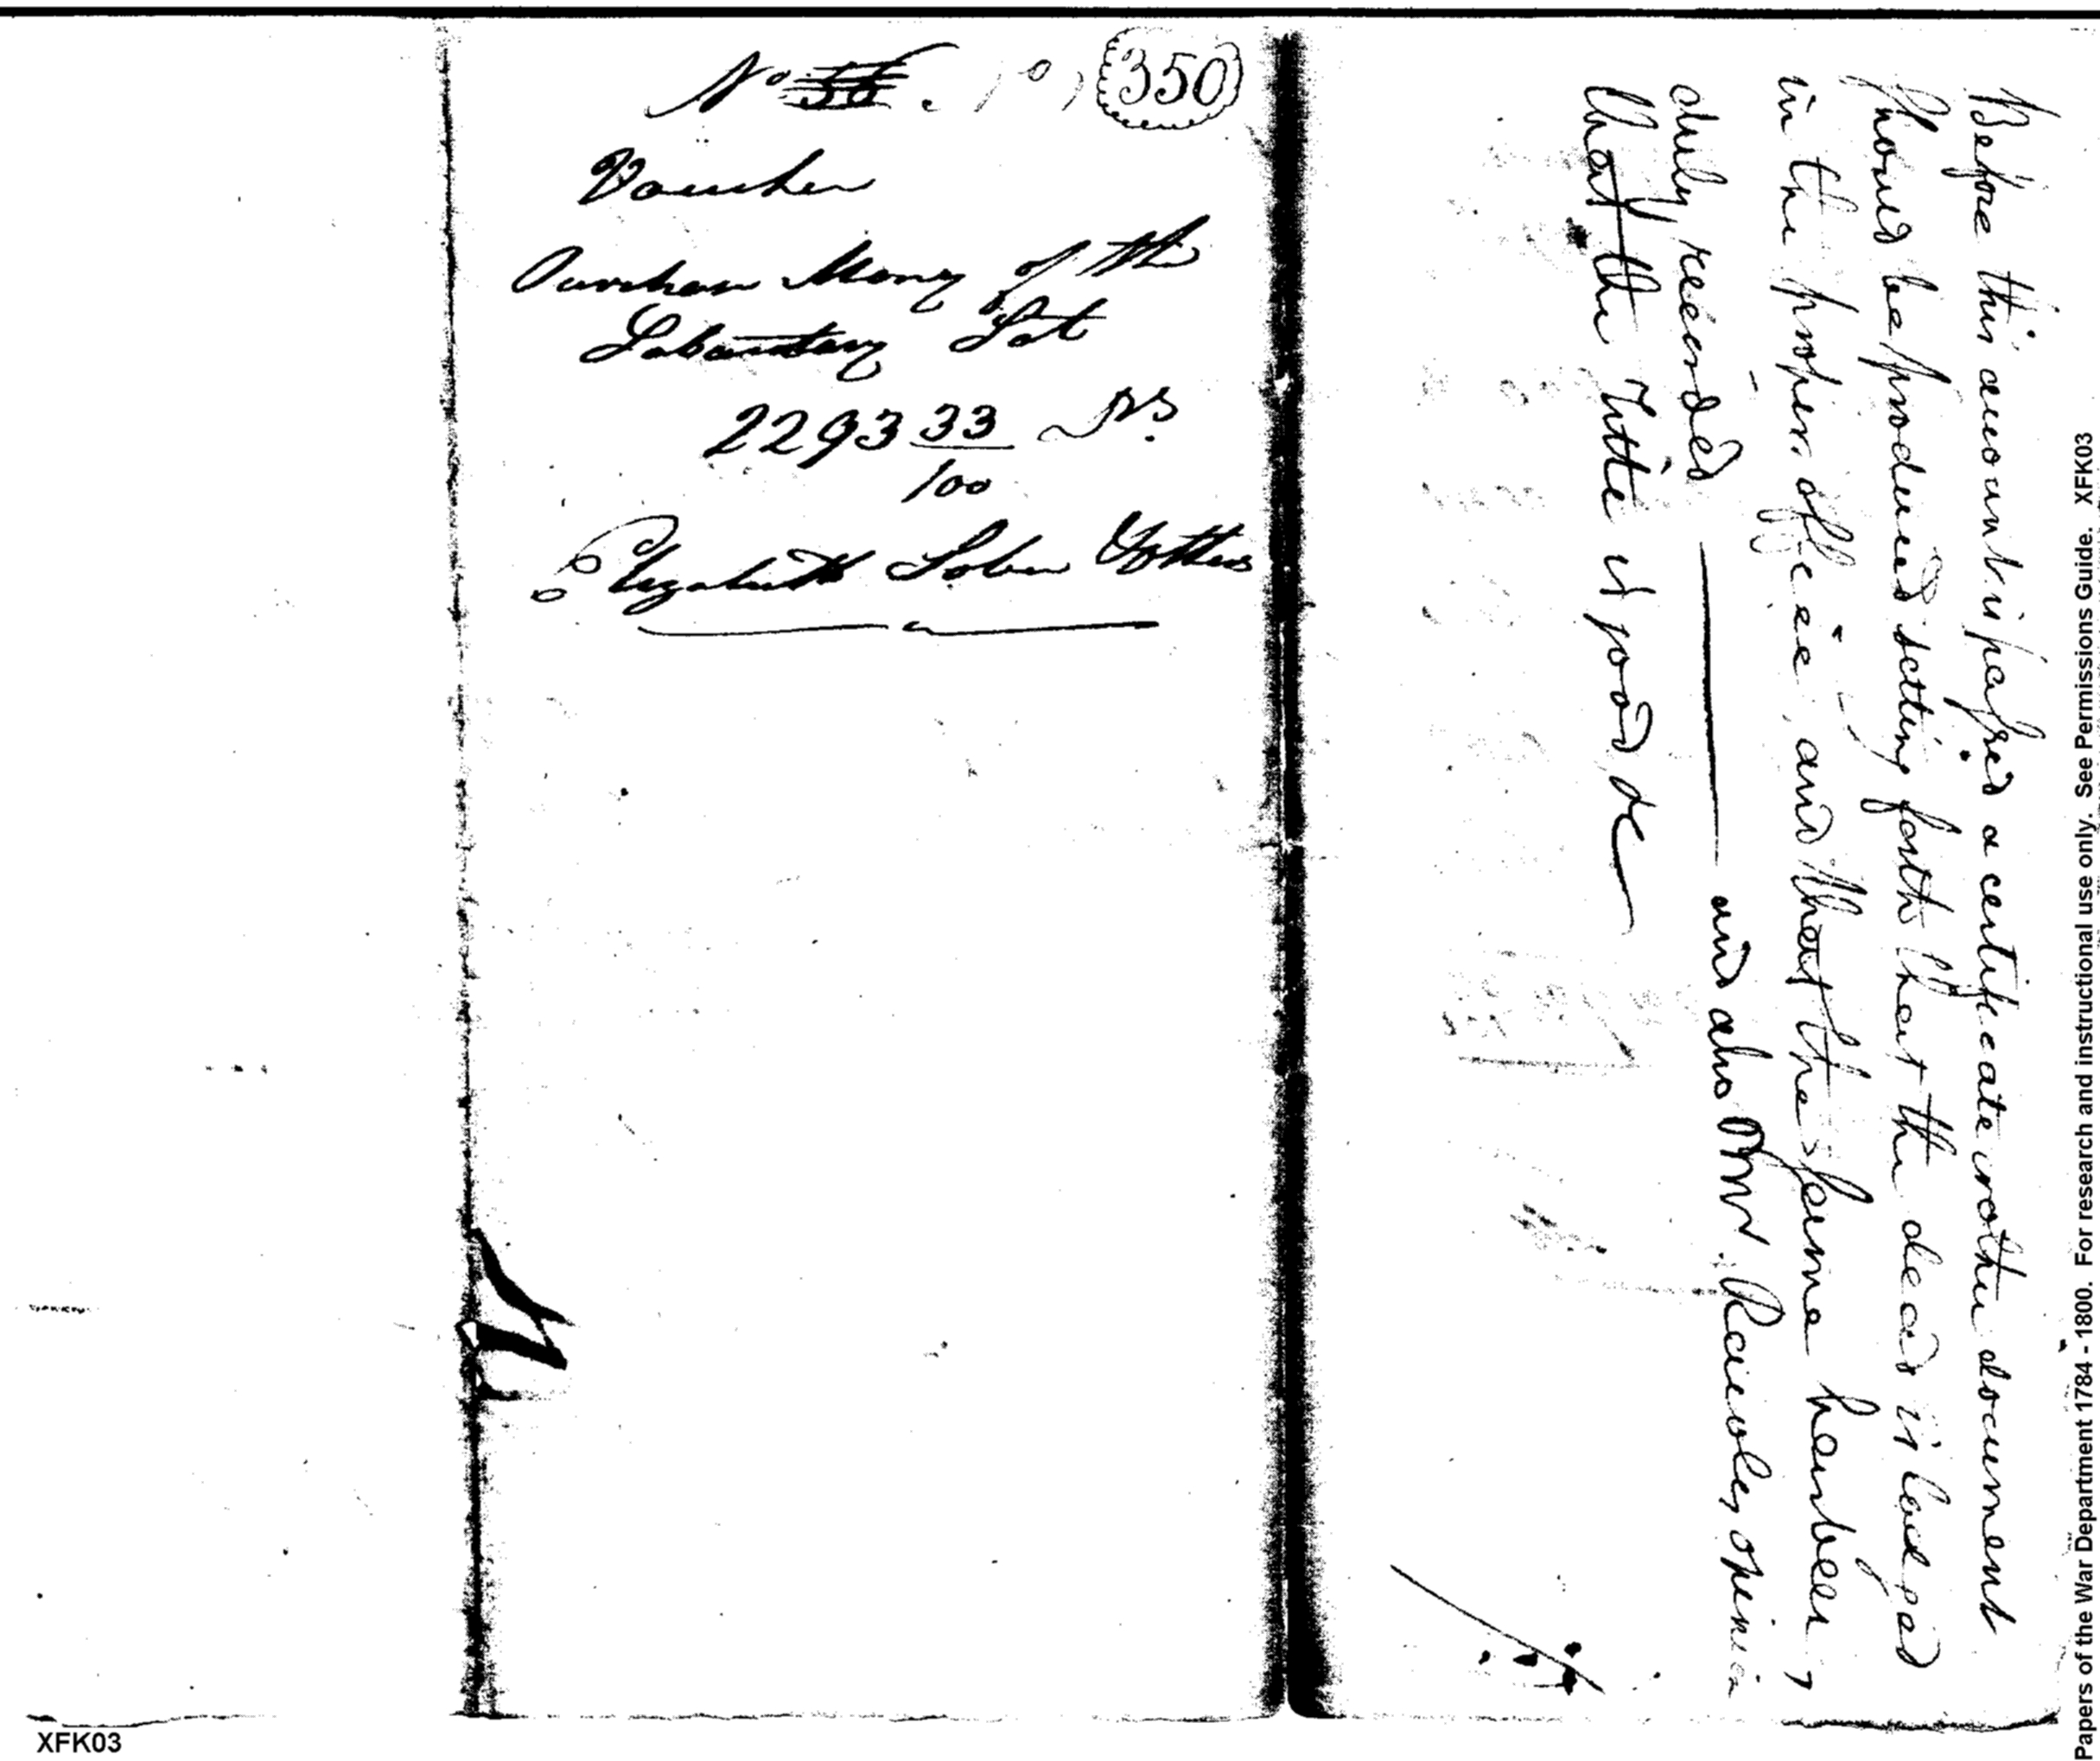 No 56. 350
Voucher
Purchase Money of the
Laboratory Lot
2293 33/100 Drs.
Elizabeth Sober & others
Before this account is passed a certificate or other document
should be produced setting forth that the deed is lodged
in the proper office, and that the same has been
duly recorded — and also Mr. Rawle's opinion
that the title is good &c
XFK03
Papers of the War Department 1784 - 1800. For research and instructional use only. See Permissions Guide. XFK03